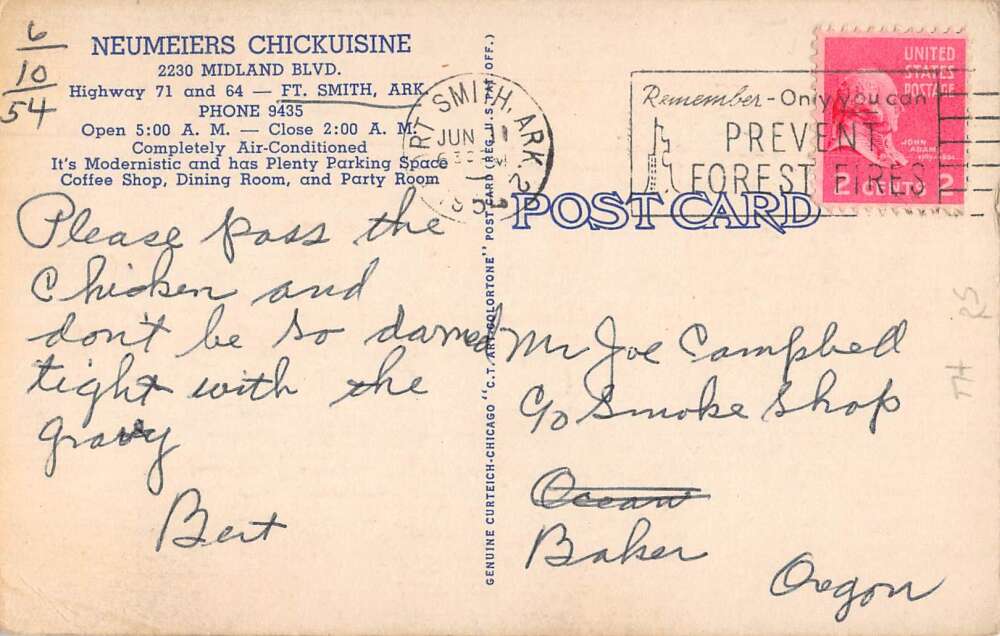 6
10
54
NEUMEIERS CHICKUISINE
2230 MIDLAND BLVD.
Highway 71 and 64 — FT. SMITH, ARK.
PHONE 9435
Open 5:00 A. M. — Close 2:00 A. M.
Completely Air-Conditioned
It's Modernistic and has Plenty Parking Space
Coffee Shop, Dining Room, and Party Room
Please pass the
Chicken and
don't be so darned
tight with the
gravy
Bert
GENUINE CURTEICH-CHICAGO "C.T. ART-COLORTONE" POST CARD (REG. U.S. PAT. OFF.)
RT SMITH, ARK. 2
JUN
Remember - Only you can
PREVENT
FOREST FIRES
UNITED
STATES
POSTAGE
JOHN
ADAMS
2 CENTS 2
POST CARD
Mr Joe Campbell
c/o Smoke Shop
Ocean
Baker
Oregon
TH
25